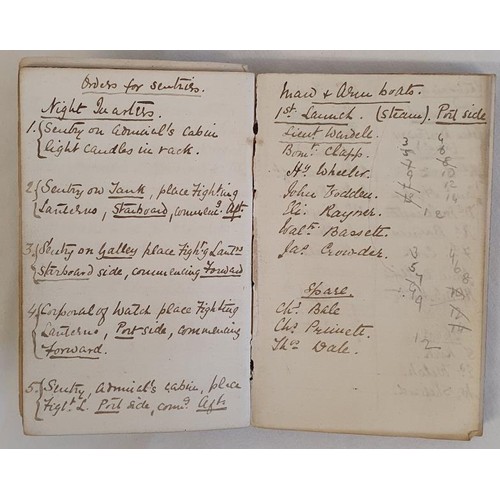 Orders for sentries.
Night Quarters.
1. Sentry on Admiral's cabin
light candles in rack.
2. Sentry on Tank, place Fighting
Lanterns, Starboard, commencg. Aft.
3. Sentry on Galley place Fightg Lantns
Starboard side, commencing Forward
4. Corporal of Watch place Fighting
Lanterns, Port side, commencing
Forward.
5. Sentry Admiral's cabin, place
Fight. L. Port side, comg Aft
Man & Arm boats.
1st Launch. (steam). Port side
Lieut Wardell.
Bomr. Clapp.
Hy. Wheeler.
John Fodden.
Eli. Rayner.
Walt. Bassett
Jas. Crowder.
Spare.
Chs. Bale
Chs. Pinnett.
Thos Dale.